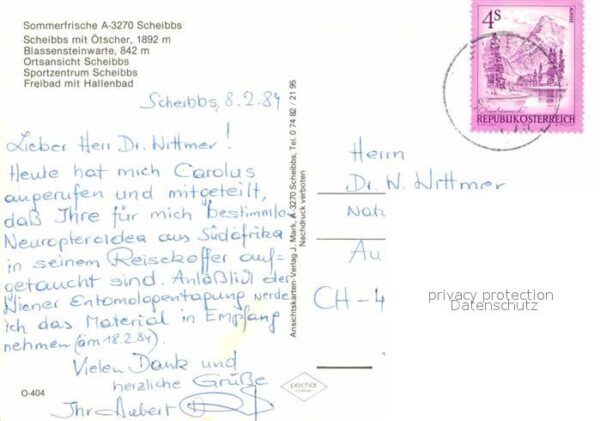 Sommerfrische A-3270 Scheibbs
Scheibbs mit Ötscher, 1892 m
Blassensteinwarte, 842 m
Ortsansicht Scheibbs
Sportzentrum Scheibbs
Freibad mit Hallenbad
Scheibbs, 8.2.84
Lieber Herr Dr. Wittmer!
Heute hat mich Carolus
angerufen und mitgeteilt,
daß Ihre für mich bestimmten
Neuropteroidea aus Südafrika
in seinem Reisekoffer auf-
getaucht sind. Anläßlich der
Wiener Entomologentagung werde
ich das Material in Empfang
nehmen (am 18.2.84).
Vielen Dank und
herzliche Grüße
Ihr Aubert
O-404
Ansichtskarten-Verlag J. Mark, A-3270 Scheibbs, Tel. 0 74 82 / 21 95
Nachdruck verboten
pechar
4 S
REPUBLIK ÖSTERREICH
Herrn
Dr. W. Wittmer
Nat
Au
CH-4
privacy protection
Datenschutz